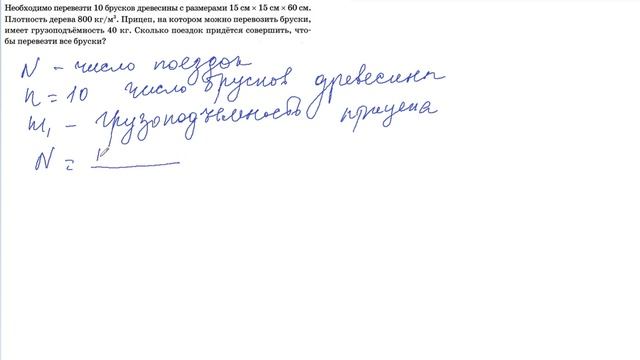 Необходимо перевезти 10 брусков древесины с размерами 15 см × 15 см × 60 см.
Плотность дерева 800 кг/м³. Прицеп, на котором можно перевозить бруски,
имеет грузоподъёмность 40 кг. Сколько поездок придётся совершить, что-
бы перевезти все бруски?
N - число поездок
n = 10 число брусков древесины
m₁ - грузоподъемность прицепа
N =